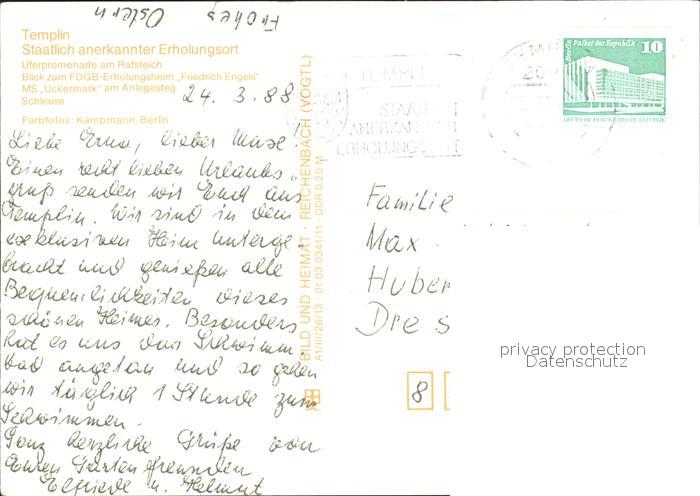 Frohes
Ostern
Templin
Staatlich anerkannter Erholungsort
Uferpromenade am Ratsteich
Blick zum FDGB-Erholungsheim „Friedrich Engels"
MS „Uckermark" am Anlegesteg
Schleuse
Farbfotos: Kampmann, Berlin
24. 3. 88
Liebe Erna, lieber Maxe.
Einen recht lieben Urlaubs„
gruß senden wir Euch aus
Templin. Wir sind in dem
exklusiven Heim unterge„
bracht und genießen alle
Bequemlichkeiten dieses
schönen Heimes. Besonders
hat es uns das Schwimm„
bad angetan und so gehen
wir täglich 1 Stunde zum
Schwimmen.
Ganz herzliche Grüße von
Euren Gartenfreunden
Elfriede u. Helmut
BILD UND HEIMAT · REICHENBACH (VOGTL)
A1/III/26/13 · 01 03 0341/11 · DDR 0,20 M
TEMPLIN
STAATLICH
ANERKANNTER
ERHOLUNGSORT
Berlin Palast der Republik 10
DEUTSCHE DEMOKRATISCHE REPUBLIK
Familie
Max
Huber
Dres
8
privacy protection
Datenschutz